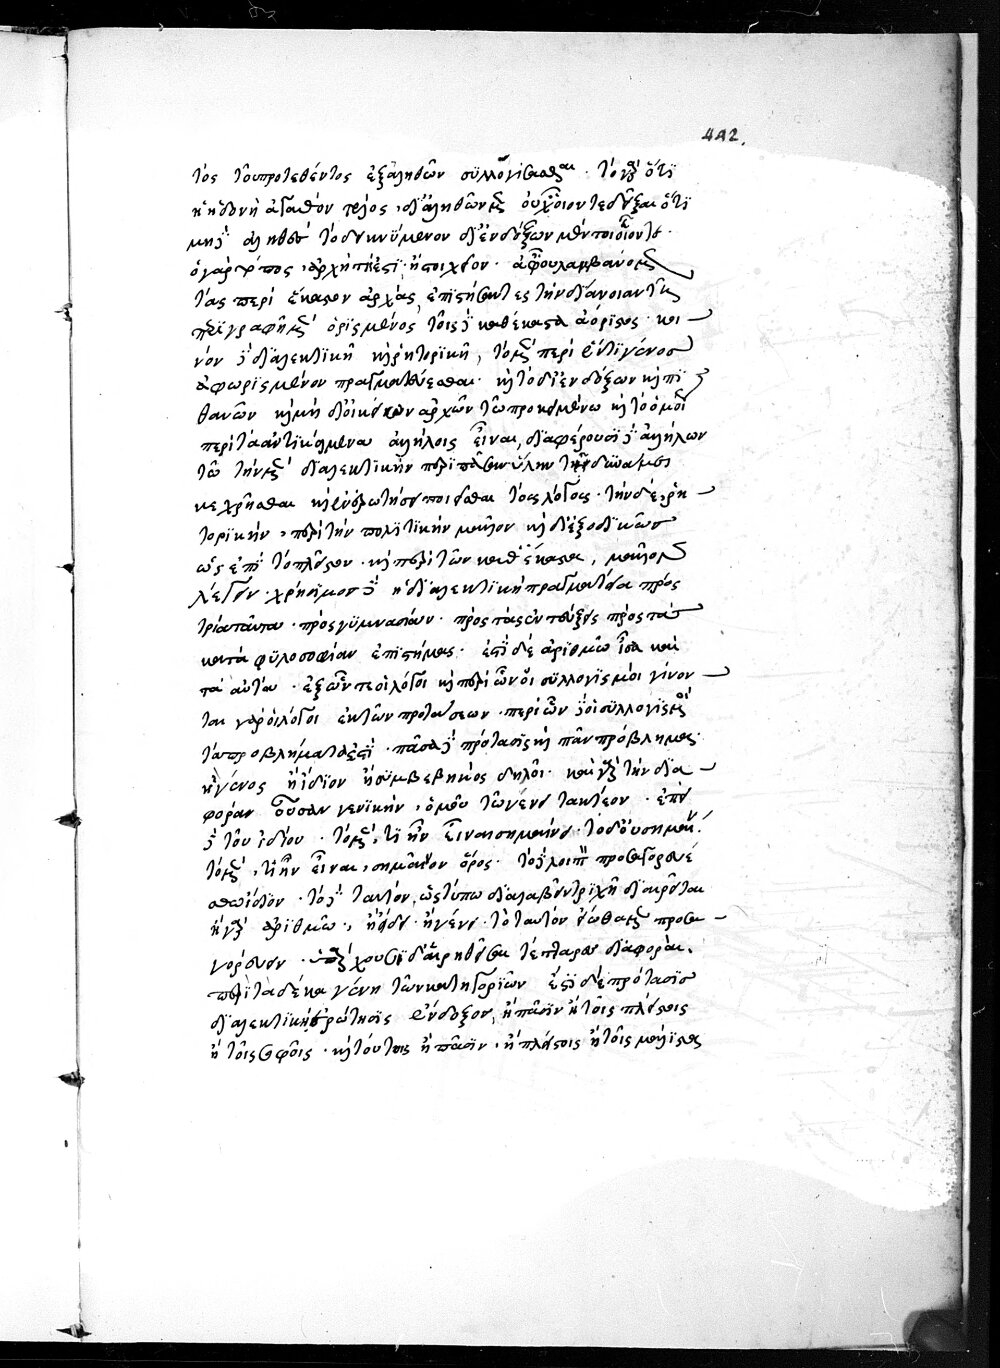 442.
τος τοῦ προτεθέντος ἐξ ἀληθῶν συλλογίσασθαι · τὸ γὰρ ὅτι
ἡ ἡδονὴ ἀγαθὸν τέλος, δι' ἀληθῶν μὲν οὐχ οἷόν τε δεῖξαι ὅτι
μηδὲ ἀληθὲς τὸ δεικνύμενον δι' ἐνδόξων μέντοι οἷόν τε ·
ὁ γὰρ τόπος, ἀρχή τις ἐστὶ ἢ στοιχεῖον · ἀφ' οὗ λαμβάνομεν
τὰς περὶ ἕκαστον ἀρχὰς, ἐπιστήσαντες τὴν διάνοιαν τῇ
περιγραφῇ μὲν ὡρισμένος, τοῖς δὲ καθέκαστα ἀόριστος · κοι
νὸν δὲ διαλεκτικῇ καὶ ῥητορικῇ, τὸ μὴ περὶ ἕν τι γένος
ἀφωρισμένον πραγματεύεσθαι · καὶ τὸ δι' ἐνδόξων καὶ πι
θανῶν καὶ μὴ δι' οἰκείων ἀρχῶν τῶ προκειμένω καὶ τὸ ὁμοῦ
περὶ τὰ ἀντικείμενα ἀλλήλοις εἶναι, διαφέρουσι δὲ ἀλλήλων
τῶ τὴν μὲν διαλεκτικὴν περὶ πᾶσαν ὕλην τῇ δυνάμει
κεχρῆσθαι καὶ ἐν ἐρωτήσει ποιεῖσθαι τοὺς λόγους · τὴν δὲ ῥη
τορικὴν, περὶ τὴν πολιτικὴν μᾶλλον καὶ διεξοδικῶς
ὡς ἐπὶ τὸ πλεῖστον · καὶ περὶ τῶν καθ' ἕκαστα, μᾶλλον
λέγειν · χρήσιμον δὲ ἡ διαλεκτικὴ πραγματεία πρὸς
τρία ταῦτα · πρὸς γυμνασίαν · πρὸς τὰς ἐντεύξεις πρὸς τὰς
κατὰ φιλοσοφίαν ἐπιστήμας · ἔστι δὲ ἀριθμῶ ἴσα καὶ
τὰ αὐτὰ · ἐξ ὧν τε οἱ λόγοι καὶ περὶ ὧν οἱ συλλογισμοί γίνον
ται γὰρ οἱ λόγοι ἐκ τῶν προτάσεων · περὶ ὧν δὲ οἱ συλλογισμοὶ
τὰ προβλήματά ἐστι · πᾶσα δὲ πρότασις καὶ πᾶν πρόβλημα
ἢ γένος ἢ ἴδιον ἢ συμβεβηκὸς δηλοῖ · καὶ γὰρ τὴν δια
φορὰν οὖσαν γενικὴν, ὁμοῦ τῶ γένει τακτέον · ἐπεὶ
δὲ τοῦ ἰδίου · τὸ μὲν, τί ἦν εἶναι σημαίνει · τὸ δ' οὐ σημαίνει
τὸ μὲν, τί ἦν εἶναι, σημαῖνον ὅρος · τὸ δὲ λοιπὸν προσαγορευέ
σθω ἴδιον · τὸ δὲ ταυτὸν, ὡς τύπω διαλαβεῖν τριχῇ διαιρεῖται
ἢ γὰρ ἀριθμῶ, ἢ εἴδει · ἢ γένει · τὸ ταυτὸν εἰώθαμεν προσα
γορεύειν · διαιρεθεῖσαι τέτταρες διαφοραί.
περὶ τὰ δέκα γένη τῶν κατηγοριῶν ἔστι δὲ πρότασις
διαλεκτικὴ ἐρώτησις ἔνδοξον, ἢ πᾶσιν ἢ τοῖς πλείστοις
ἢ τοῖς σοφοῖς · καὶ τούτοις ἢ πᾶσιν, ἢ πλείστοις ἢ τοῖς μάλιστα